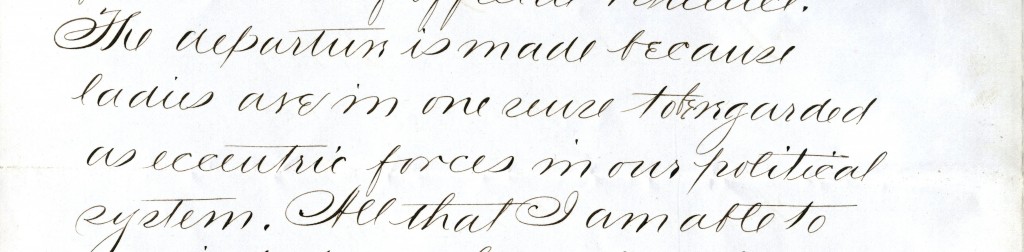 The departure is made because
ladies are in one sense to be regarded
as eccentric forces in our political
system. All that I am able to